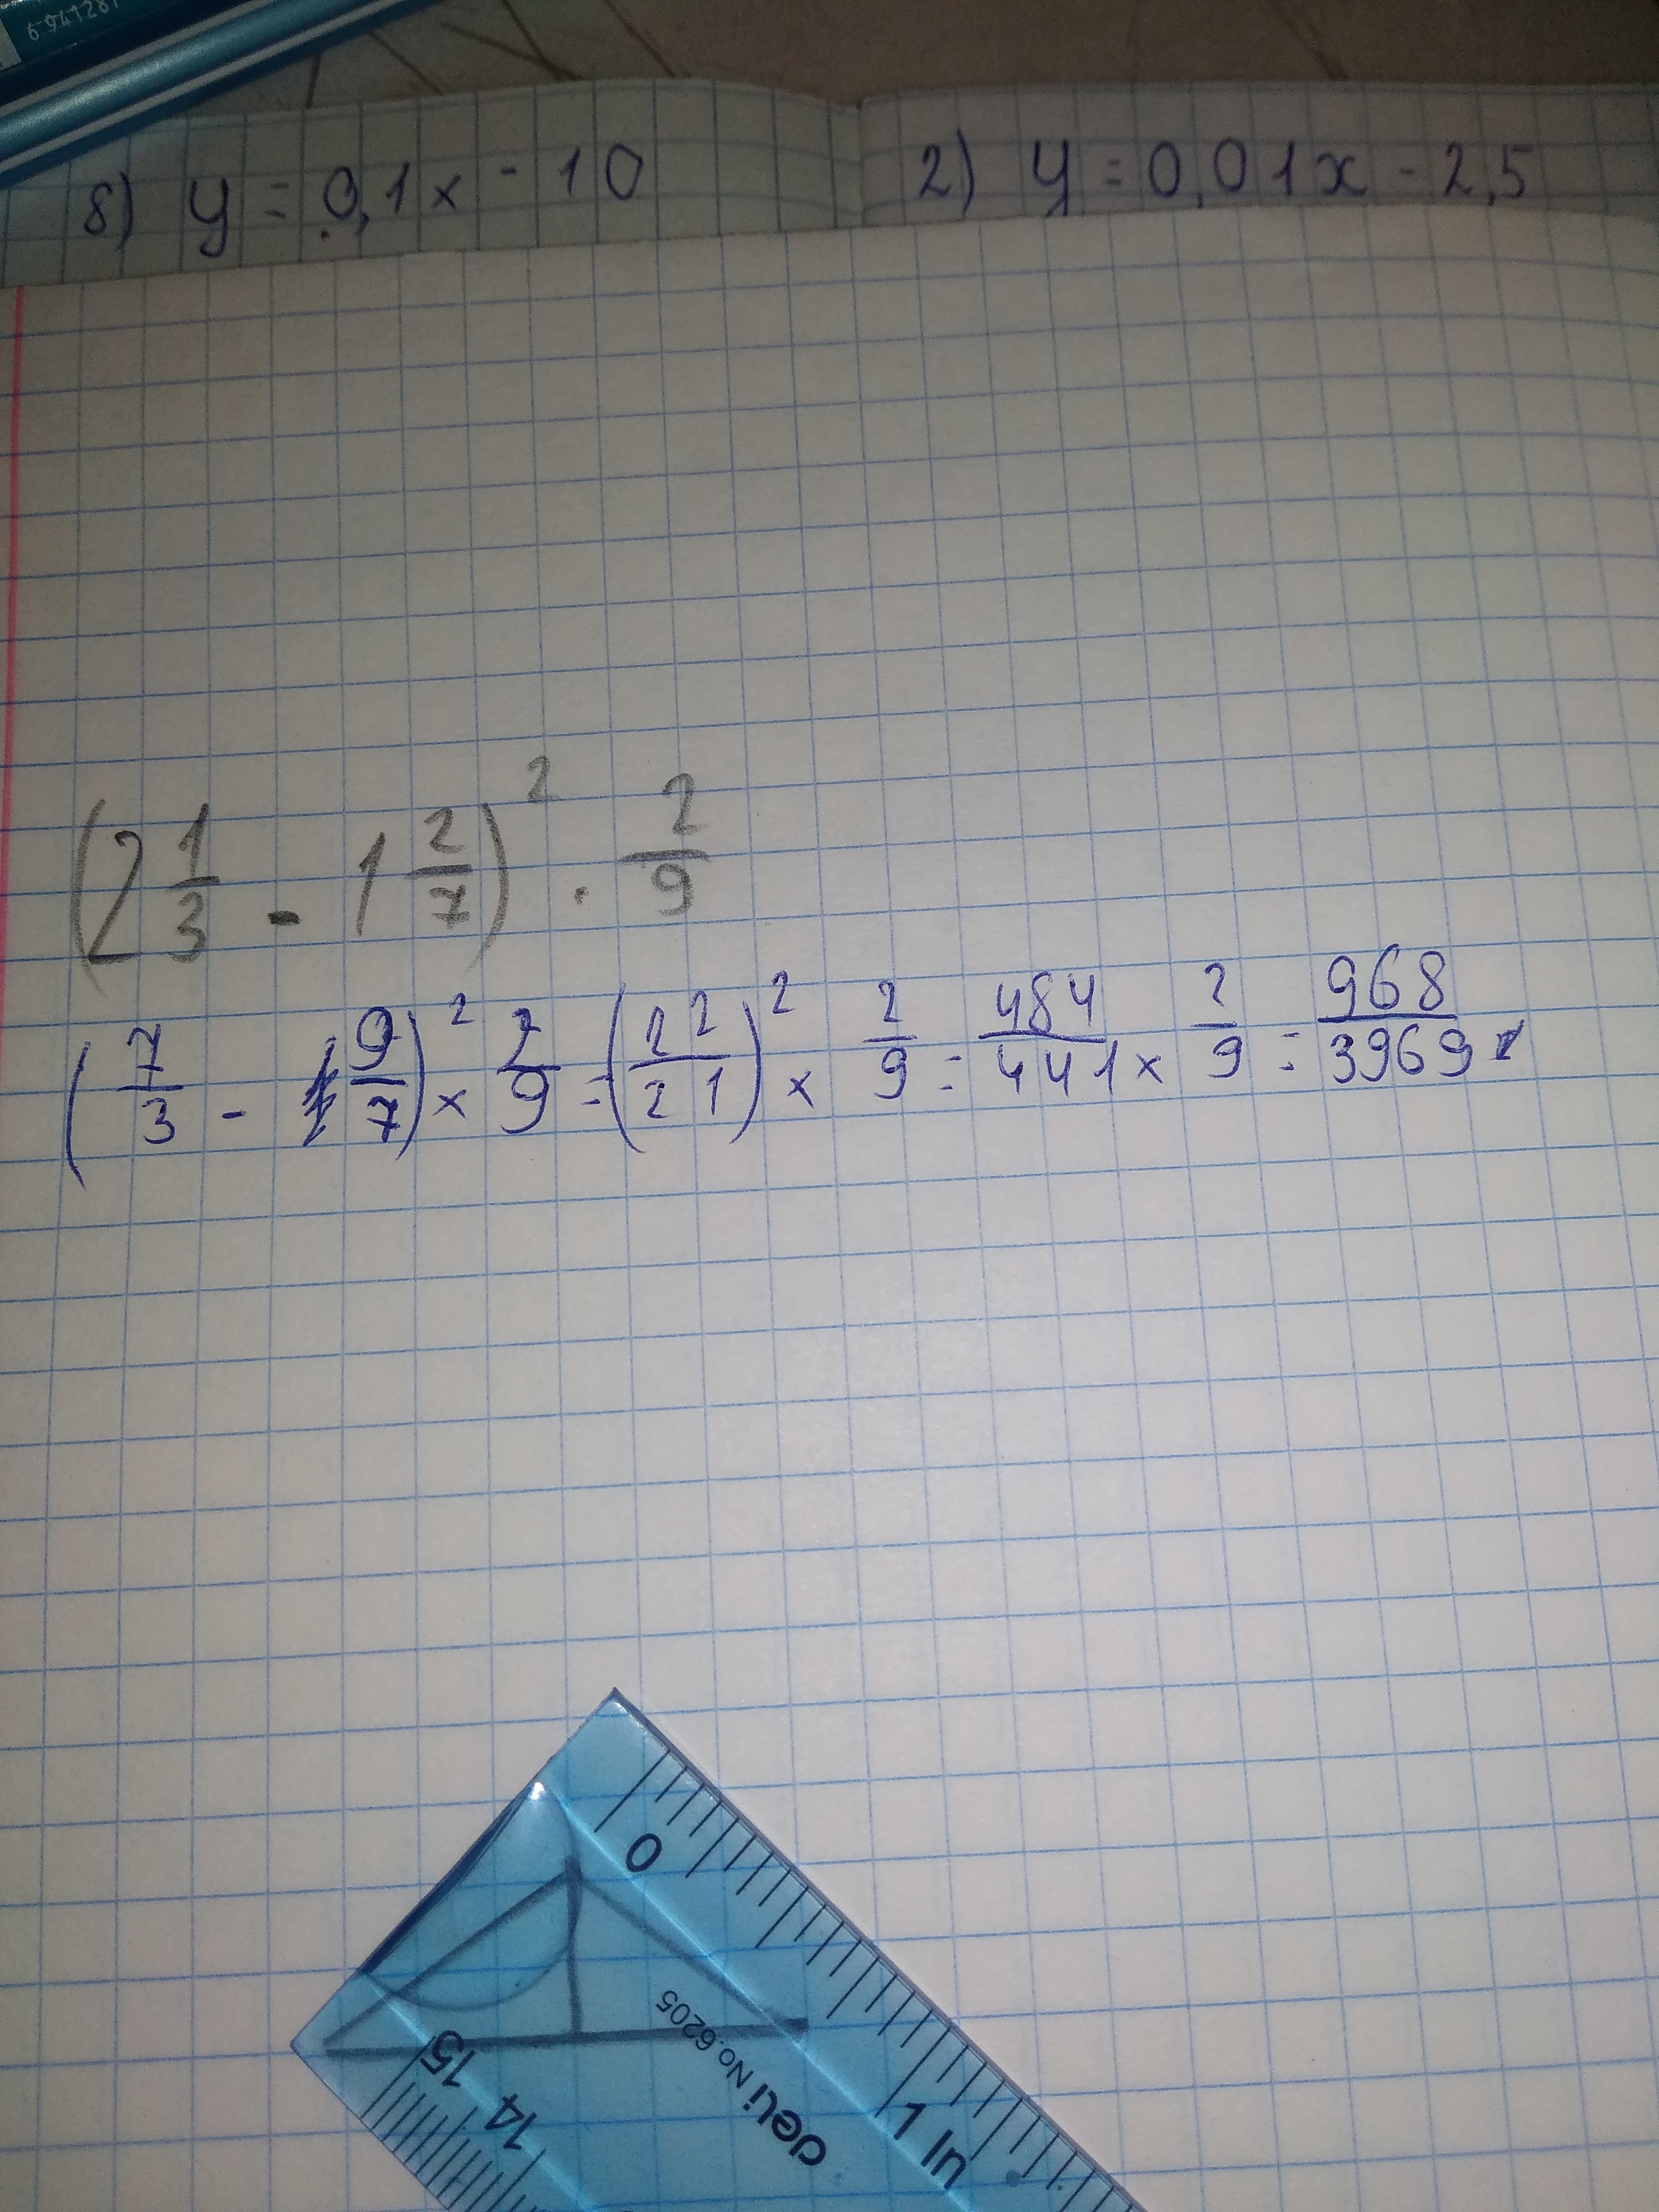 6941281
8) y = 0,1x - 10
2) y = 0,01x - 2,5
(2 1/3 - 1 2/7)² · 2/9
(7/3 - 9/7)² × 2/9 = (22/21)² × 2/9 = 484/441 × 2/9 = 968/3969
0
1 IN
15
14
deli No.6205